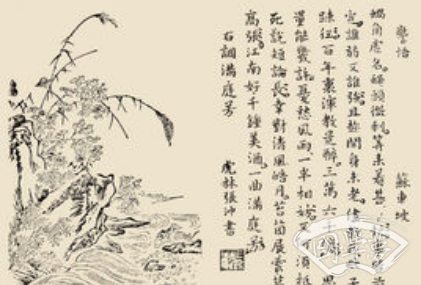 警悟 蘇東坡
蝸角虛名蠅頭微利算來著甚
定誰弱又誰強且趁閒身未老儘
疎狂百年裏渾教是醉三萬六千
量能幾許憂愁風雨一半相妨又何須抵
死說短論長幸對清風皓月苔茵展雲
高張江南好千鍾美酒一曲滿庭芳
右調滿庭芳
虎林張沖書